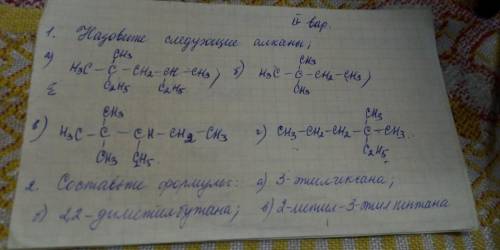 IV вар.
1. Назовите следующие алканы;
CH3 CH3
а) H3C – C – CH2 – CH – CH3, б) H3C – C – CH2 – CH3,
C2H5 C2H5 CH3
CH3 CH3
в) H3C – C – CH – CH2 – CH3 г) CH3–CH2–CH2–C–CH3.
CH3 C2H5 C2H5
2. Составьте формулы: а) 3-этилгиксана;
б) 22-диметилбутана; в) 2-метил-3-этил пентана